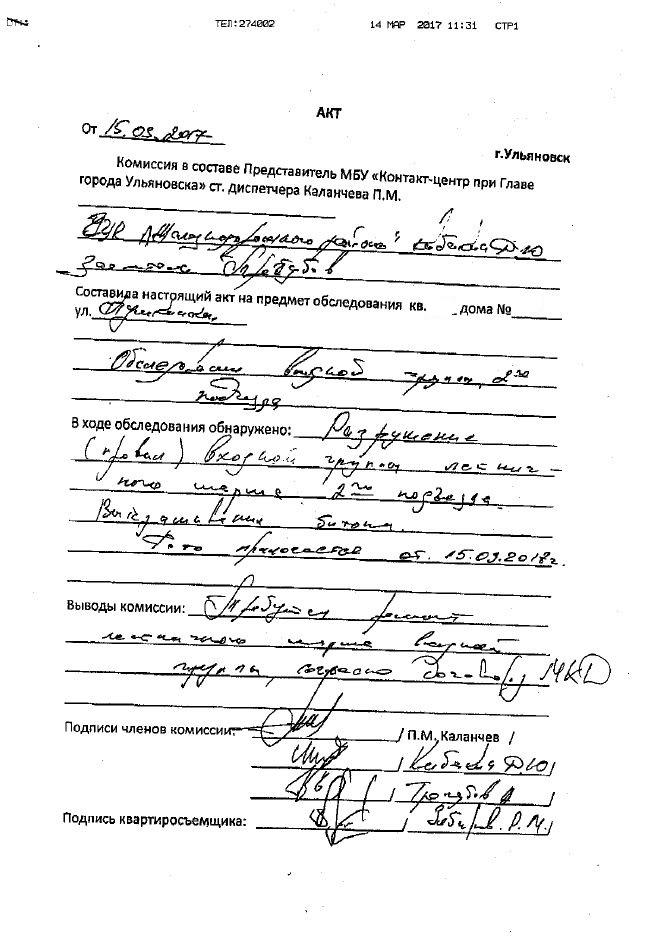 ТЕЛ:274002 14 МАР 2017 11:31 СТР1
АКТ
От 15.03.2017
г.Ульяновск
Комиссия в составе Представитель МБУ «Контакт-центр при Главе
города Ульяновска» ст. диспетчера Каланчева П.М.
Железнодорожного района" Д.Ю
Составида настоящий акт на предмет обследования кв. дома №
ул.
Обследован входной группы, 2го
подъезда
В ходе обследования обнаружено: Разрушение
(провал) входной группы лестнич-
ного марша 2го подъезда.
бетона.
Фото от. 15.03.2018г.
Выводы комиссии: Требуется ремонт
лестничного марша входной
группы, согласно договору МКД
Подписи членов комиссии: / П.М. Каланчев /
/ Д.Ю /
/ /
Подпись квартиросъемщика: / Р.М. /